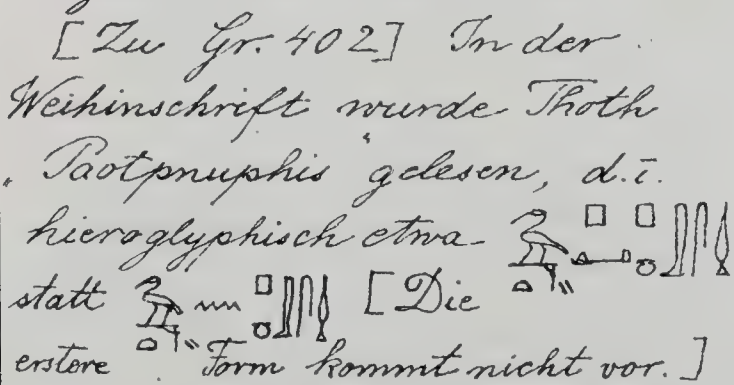 [Zu Gr. 402] In der
Weihinschrift wurde Thoth
„Paotpnuphis“ gelesen, d.i.
hieroglyphisch etwa
statt [Die
erstere Form kommt nicht vor.]